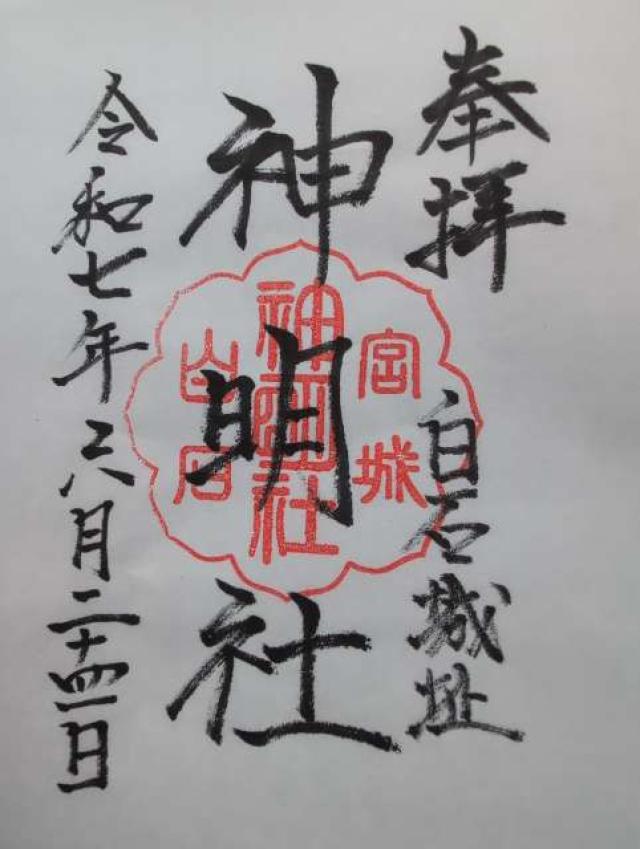 奉拝
白石城址
神明社
令和七年六月二十四日
宮城
神明社
白石